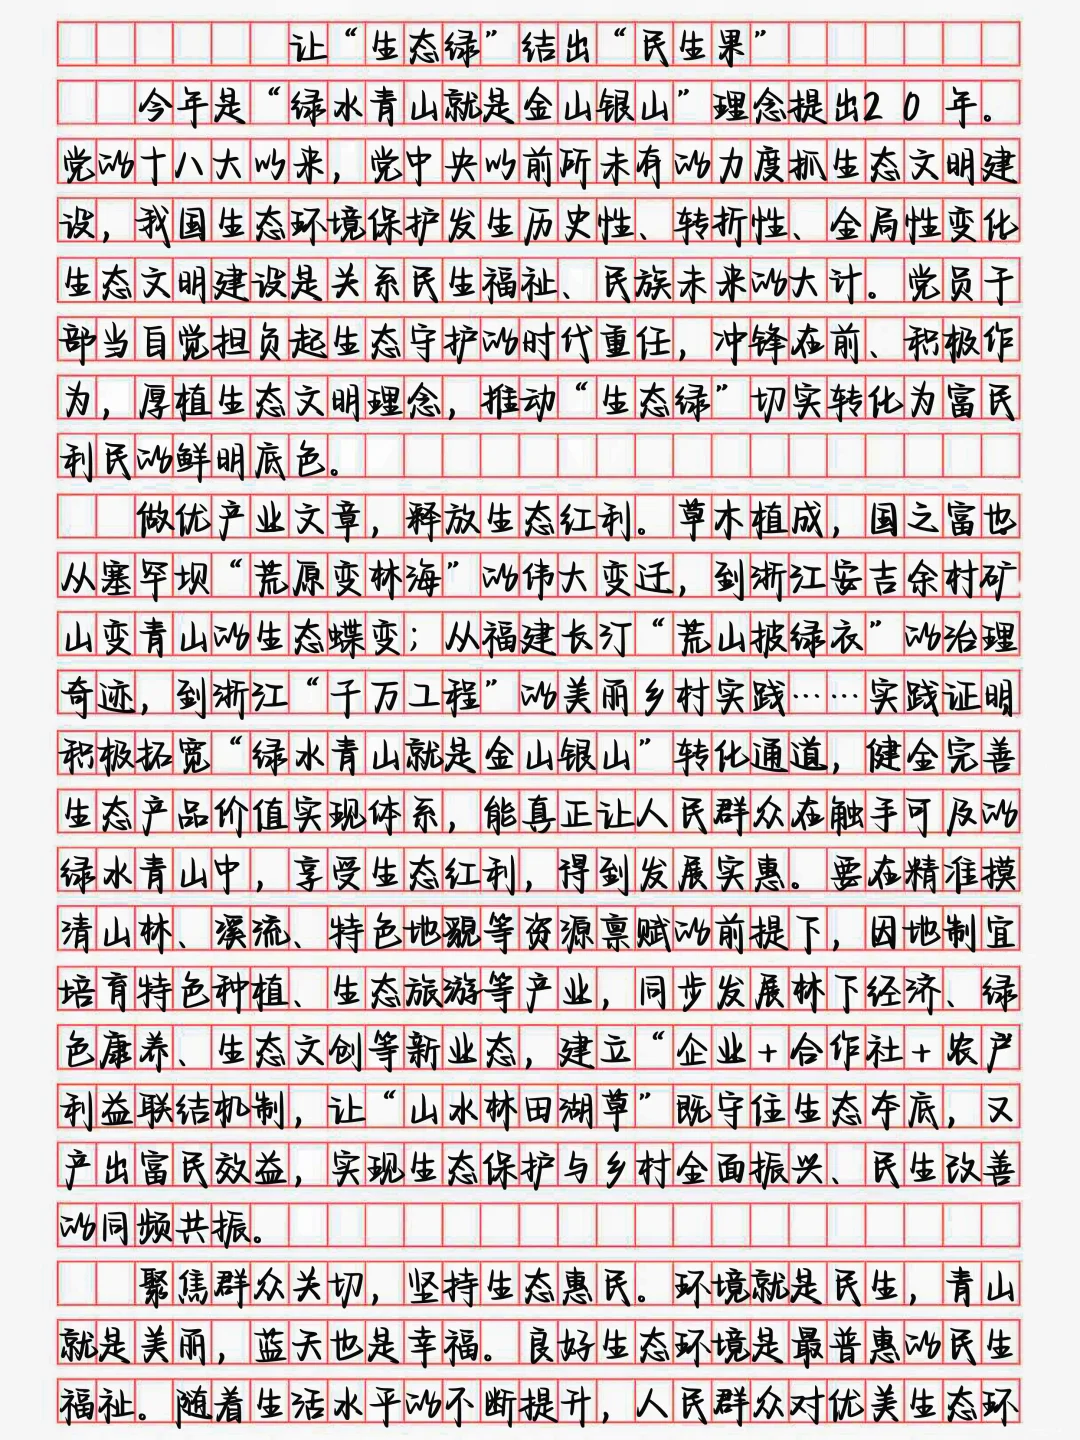 让“生态绿”结出“民生果”
今年是“绿水青山就是金山银山”理念提出20年。
党的十八大以来，党中央以前所未有的力度抓生态文明建
设，我国生态环境保护发生历史性、转折性、全局性变化
生态文明建设是关系民生福祉、民族未来的大计。党员干
部当自觉担负起生态守护的时代重任，冲锋在前、积极作
为，厚植生态文明理念，推动“生态绿”切实转化为富民
利民的鲜明底色。
做优产业文章，释放生态红利。草木植成，国之富也
从塞罕坝“荒原变林海”的伟大变迁，到浙江安吉余村矿
山变青山的生态蝶变；从福建长汀“荒山披绿衣”的治理
奇迹，到浙江“千万工程”的美丽乡村实践……实践证明
积极拓宽“绿水青山就是金山银山”转化通道，健全完善
生态产品价值实现体系，能真正让人民群众在触手可及的
绿水青山中，享受生态红利，得到发展实惠。要在精准摸
清山林、溪流、特色地貌等资源禀赋的前提下，因地制宜
培育特色种植、生态旅游等产业，同步发展林下经济、绿
色康养、生态文创等新业态，建立“企业+合作社+农户
利益联结机制，让“山水林田湖草”既守住生态本底，又
产出富民效益，实现生态保护与乡村全面振兴、民生改善
的同频共振。
聚焦群众关切，坚持生态惠民。环境就是民生，青山
就是美丽，蓝天也是幸福。良好生态环境是最普惠的民生
福祉。随着生活水平的不断提升，人民群众对优美生态环